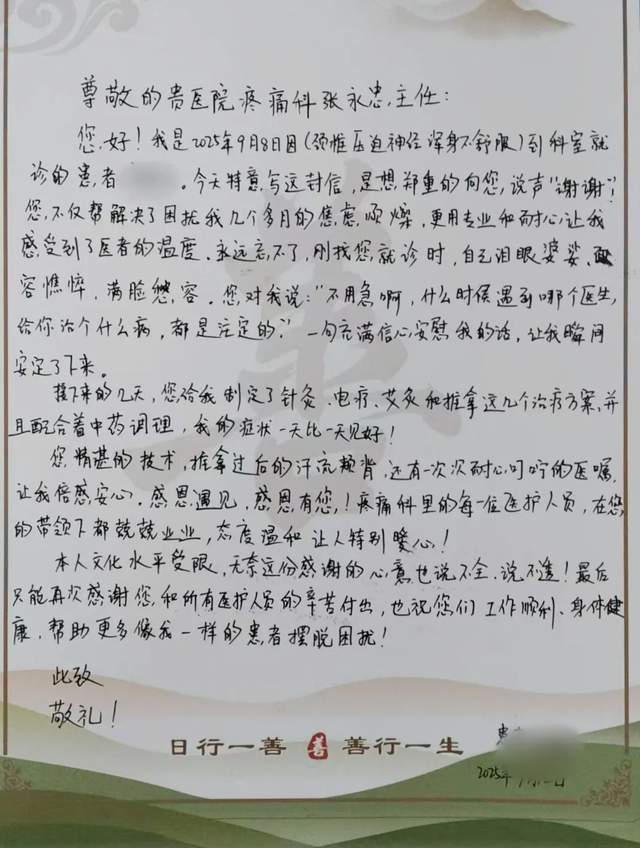 尊敬的贵医院疼痛科张永忠主任：
您好！我是2025年9月8日因(颈椎压迫神经浑身不舒服)到科室就
诊的患者 。今天特意写这封信，是想郑重的向您说声"谢谢"！
您不仅帮解决了困扰我几个多月的焦虑烦燥，更用专业和耐心让我
感受到了医者的温度。永远忘不了，刚找您就诊时，自己泪眼婆娑、面
容憔悴，满脸愁容。您对我说："不用急啊，什么时候遇到哪个医生，
给你治个什么病，都是注定的。"一句充满信心安慰我的话，让我瞬间
安定了下来。
接下来的几天，您给我制定了针灸、电疗、艾灸和推拿这几个治疗方案，并
且配合着中药调理，我的症状一天比一天见好！
您精甚的技术，推拿过后的汗流颊背，还有一次次耐心叮咛的医嘱，
让我倍感安心。感恩遇见，感恩有您！疼痛科里的每一位医护人员，在您
的带领下都兢兢业业，态度温和让人特别暖心！
本人文化水平受限，无奈这份感谢的心意也说不全、说不透！最后
只能再次感谢您和所有医护人员的辛苦付出，也祝您们工作顺利、身体健
康，帮助更多像我一样的患者摆脱困扰！
此致
敬礼！
日行一善 善 善行一生
患
2025年